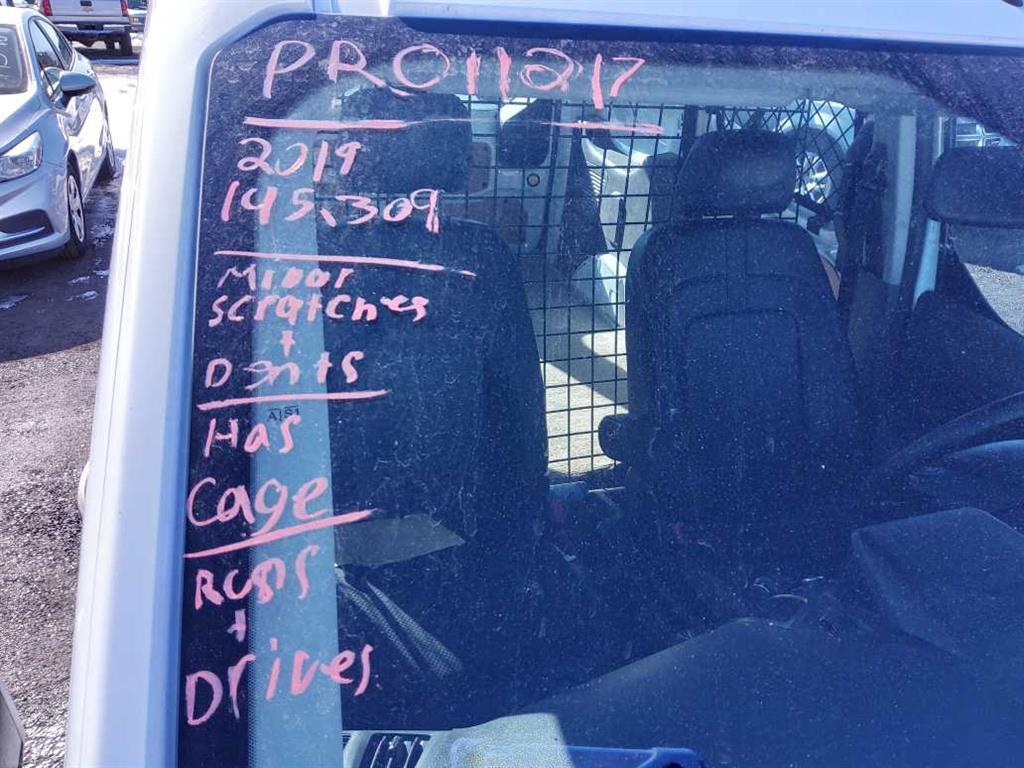 PRO11217
2019
145,309
Minor
scratches
+
Dents
AS1
Has
Cage
Runs
+
Drives